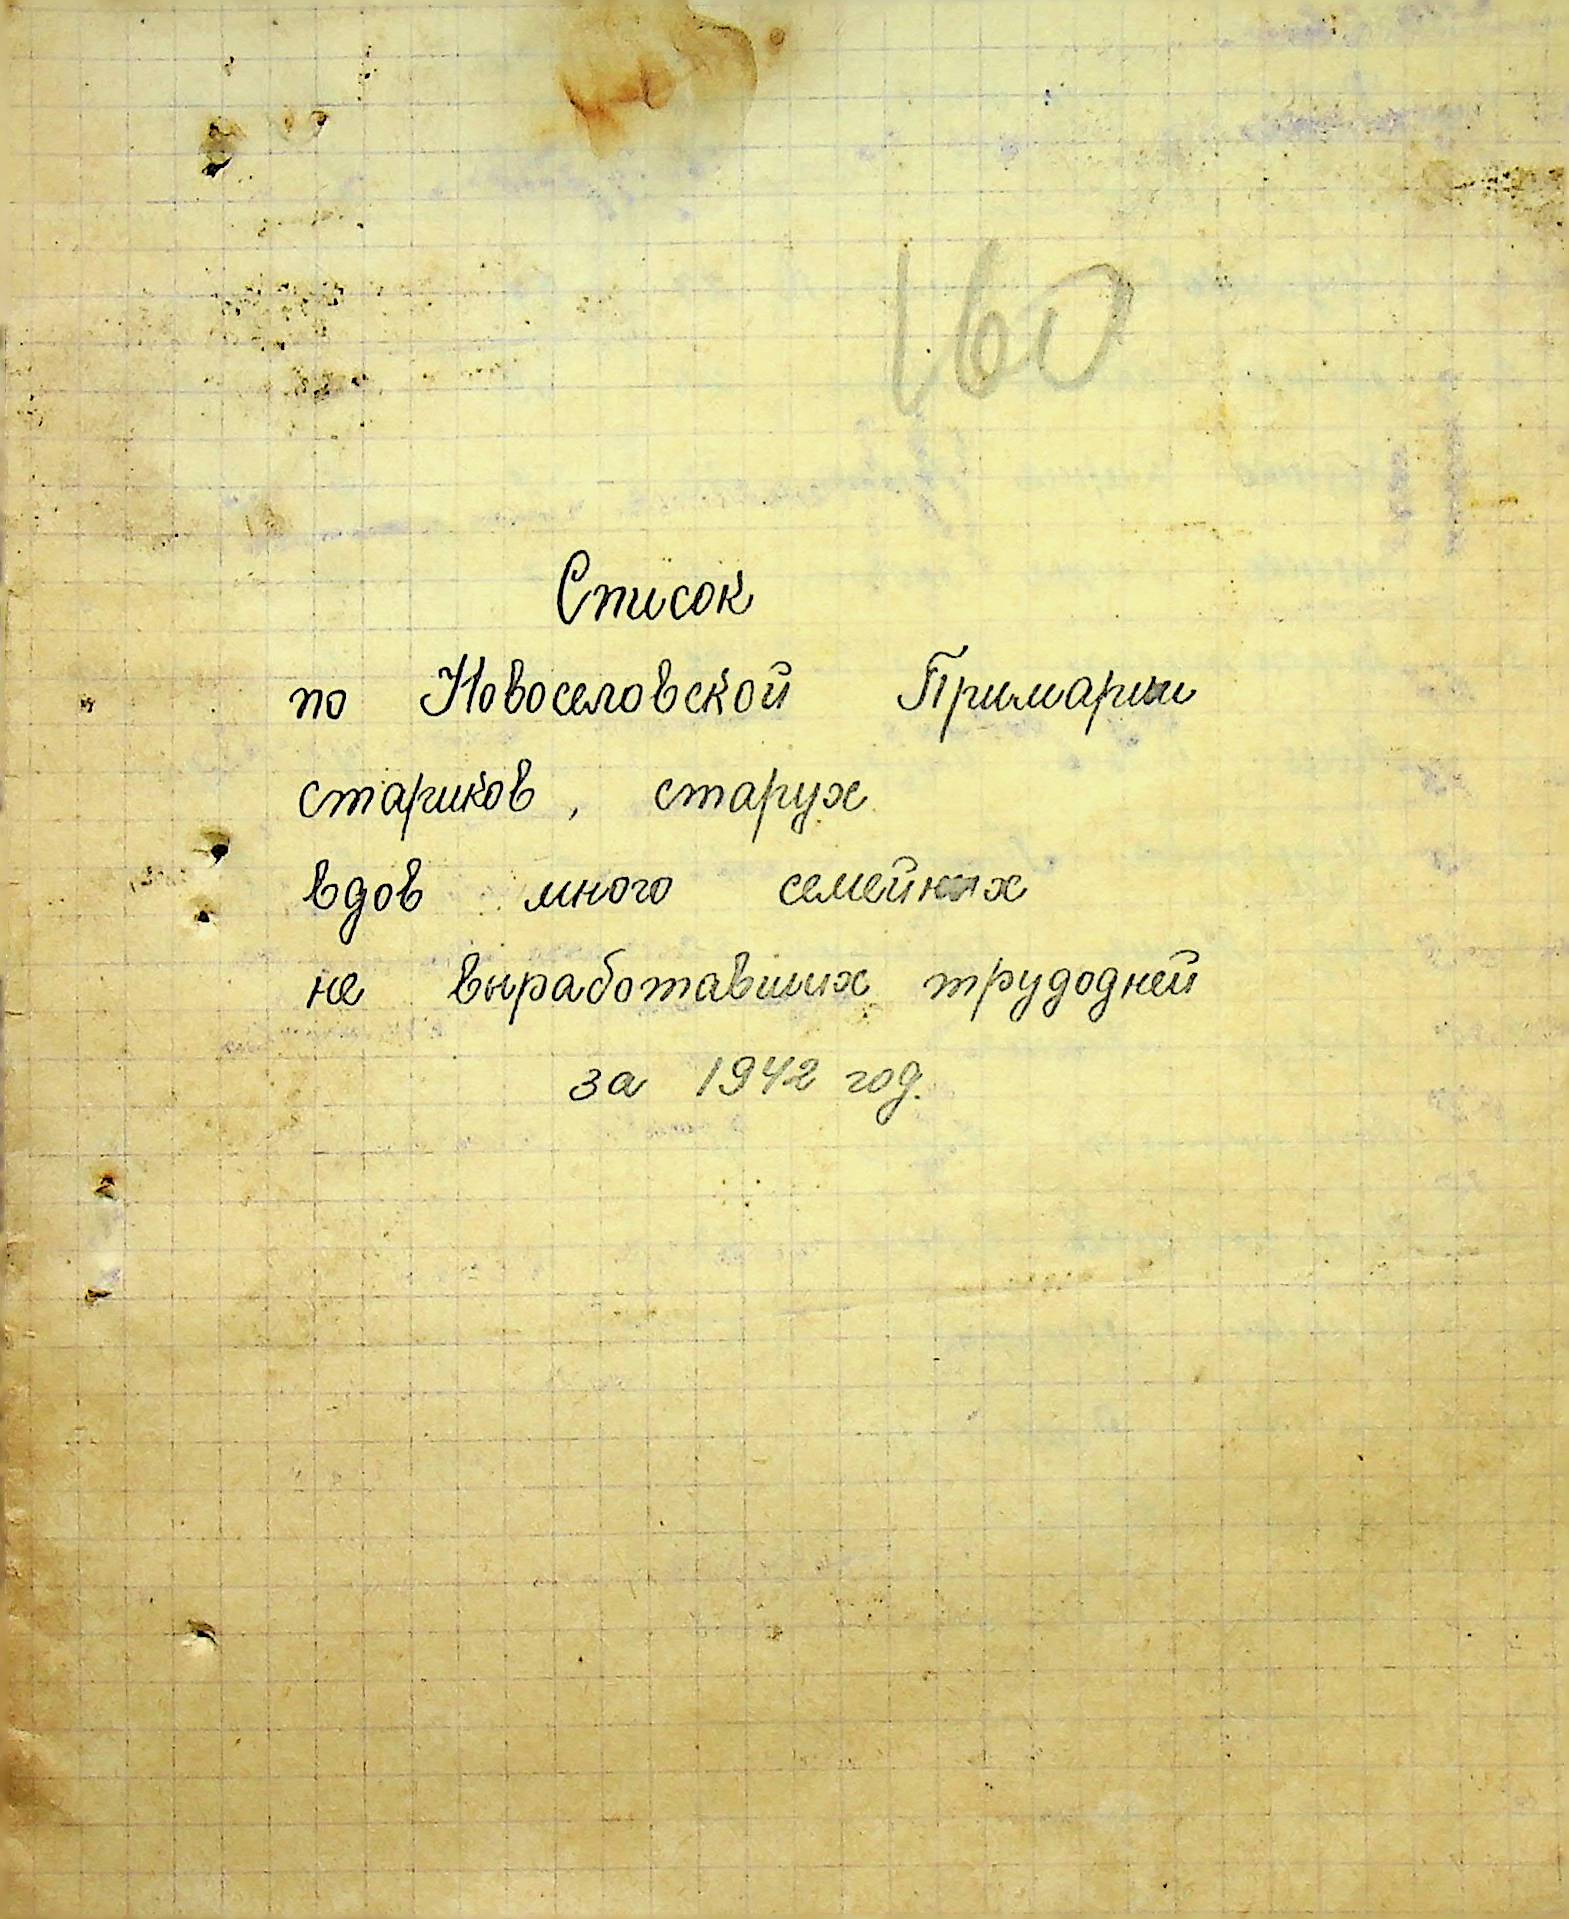 160
Список
по Новоселовской Примарии
стариков, старух
вдов много семейных
не выработавших трудодней
за 1942 год.